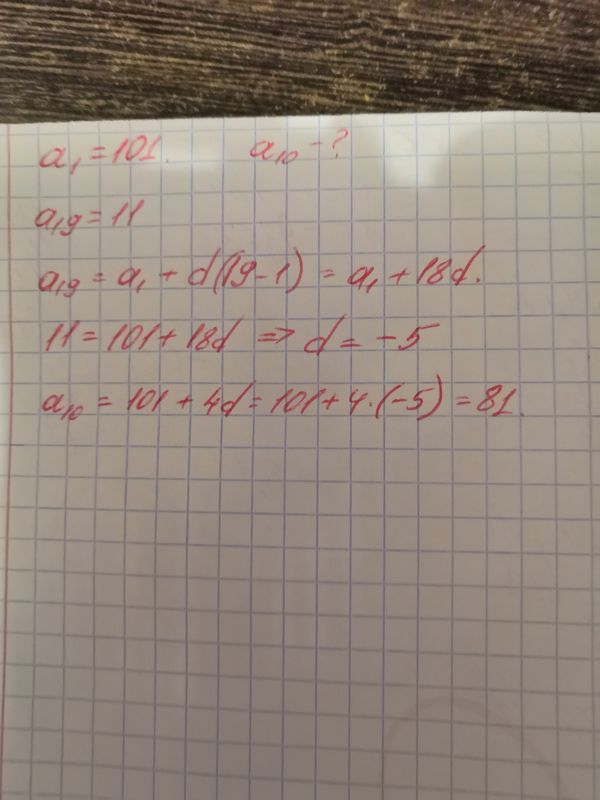 a₁ = 101. a₁₀ - ?
a₁₉ = 11
a₁₉ = a₁ + d(19-1) = a₁ + 18d.
11 = 101 + 18d ⇒ d = -5
a₁₀ = 101 + 4d = 101 + 4·(-5) = 81.